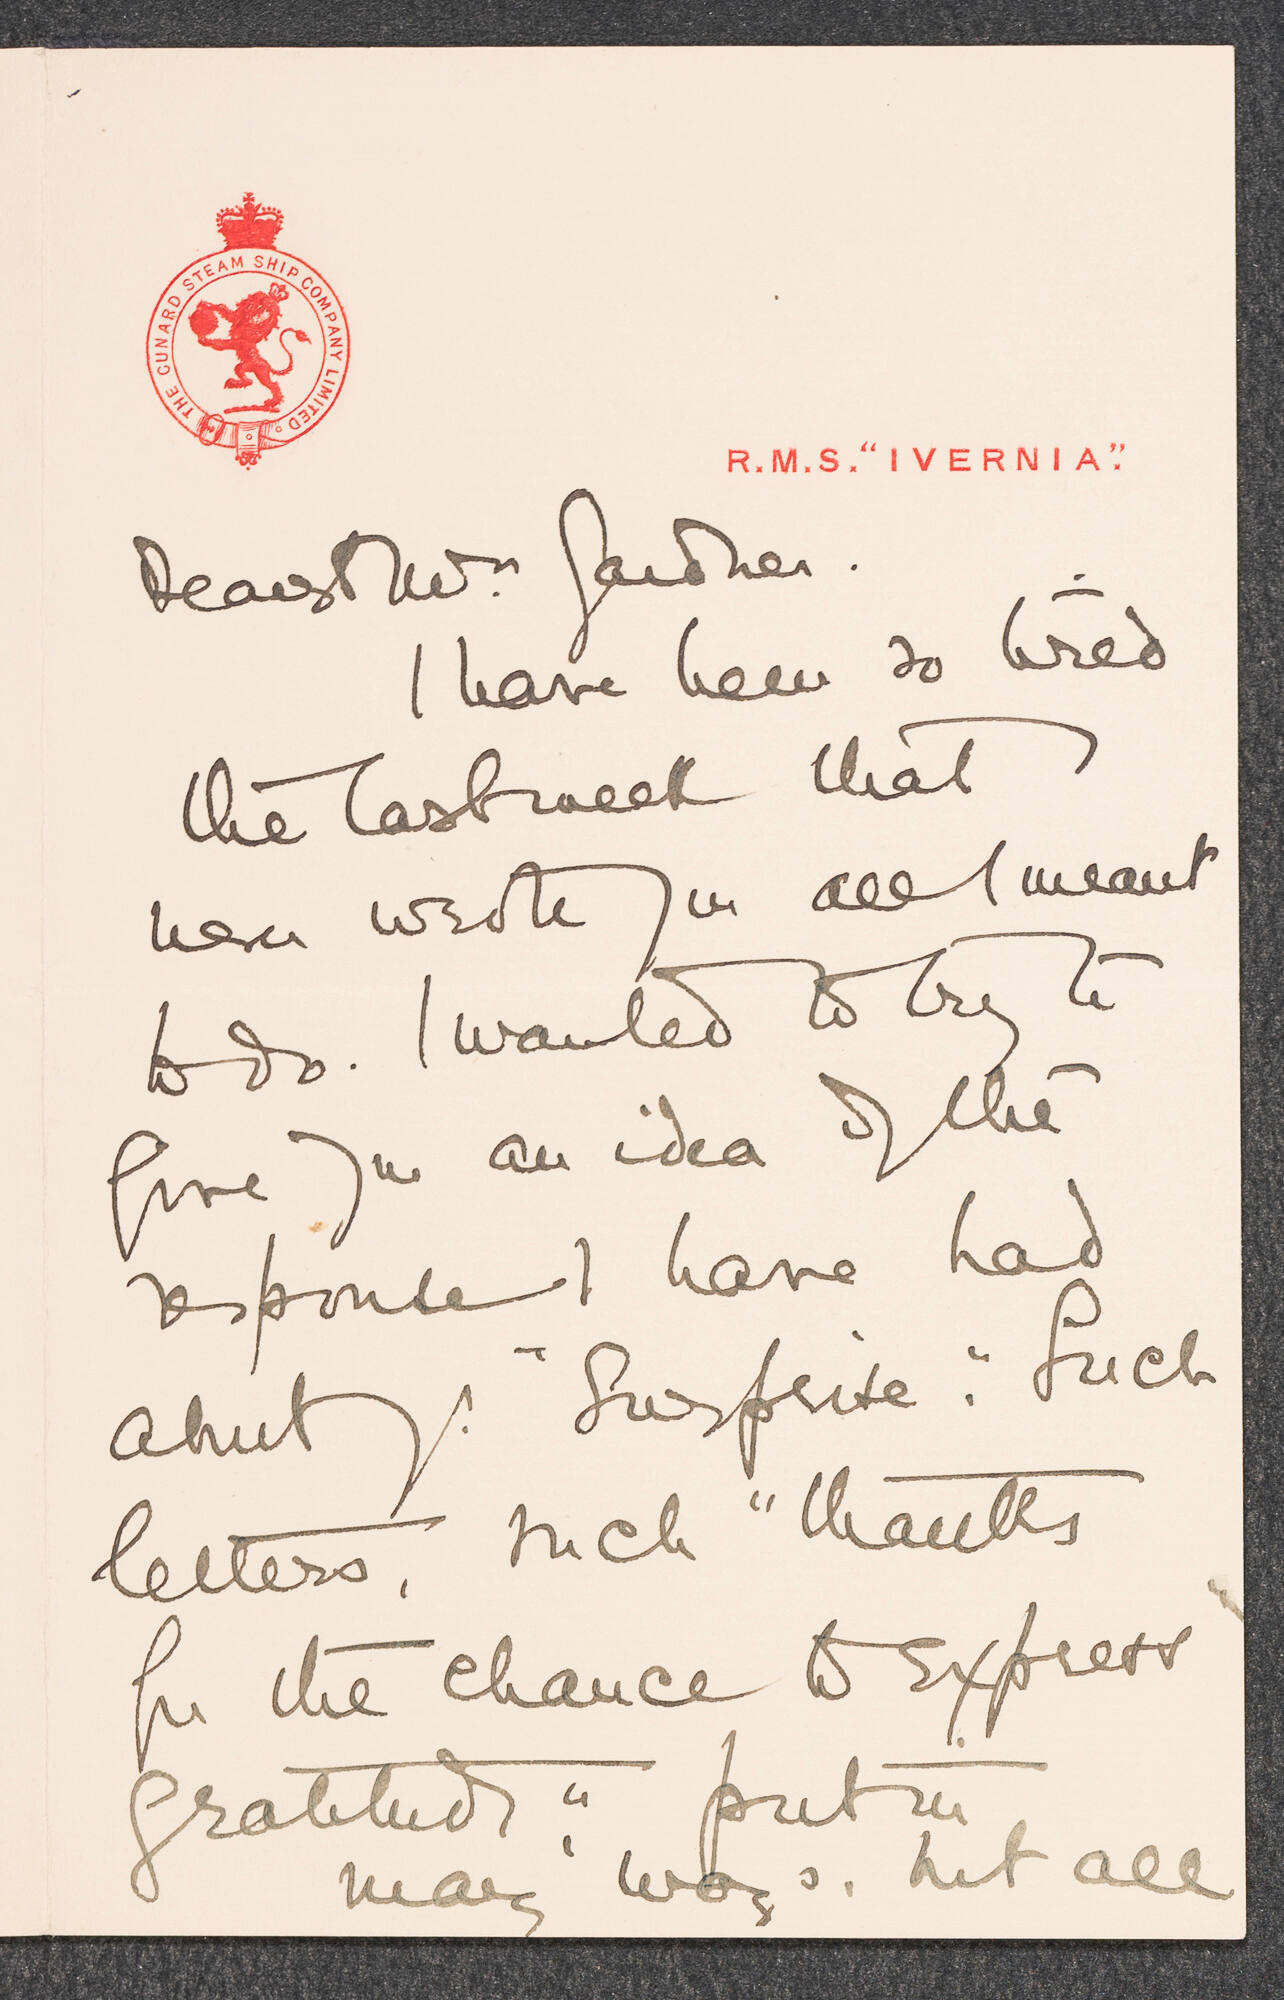 THE CUNARD STEAM SHIP COMPANY LIMITED.
R.M.S. "IVERNIA".
Dearest Mrs. Gardner.
I have been so tired
the last week that
never wrote you all I meant
to do. I wanted to try to
give you an idea of the
response I have had
about yr. "Surprise". Such
letters, such "thanks
for the chance to express
gratitude", put in
many ways. but all